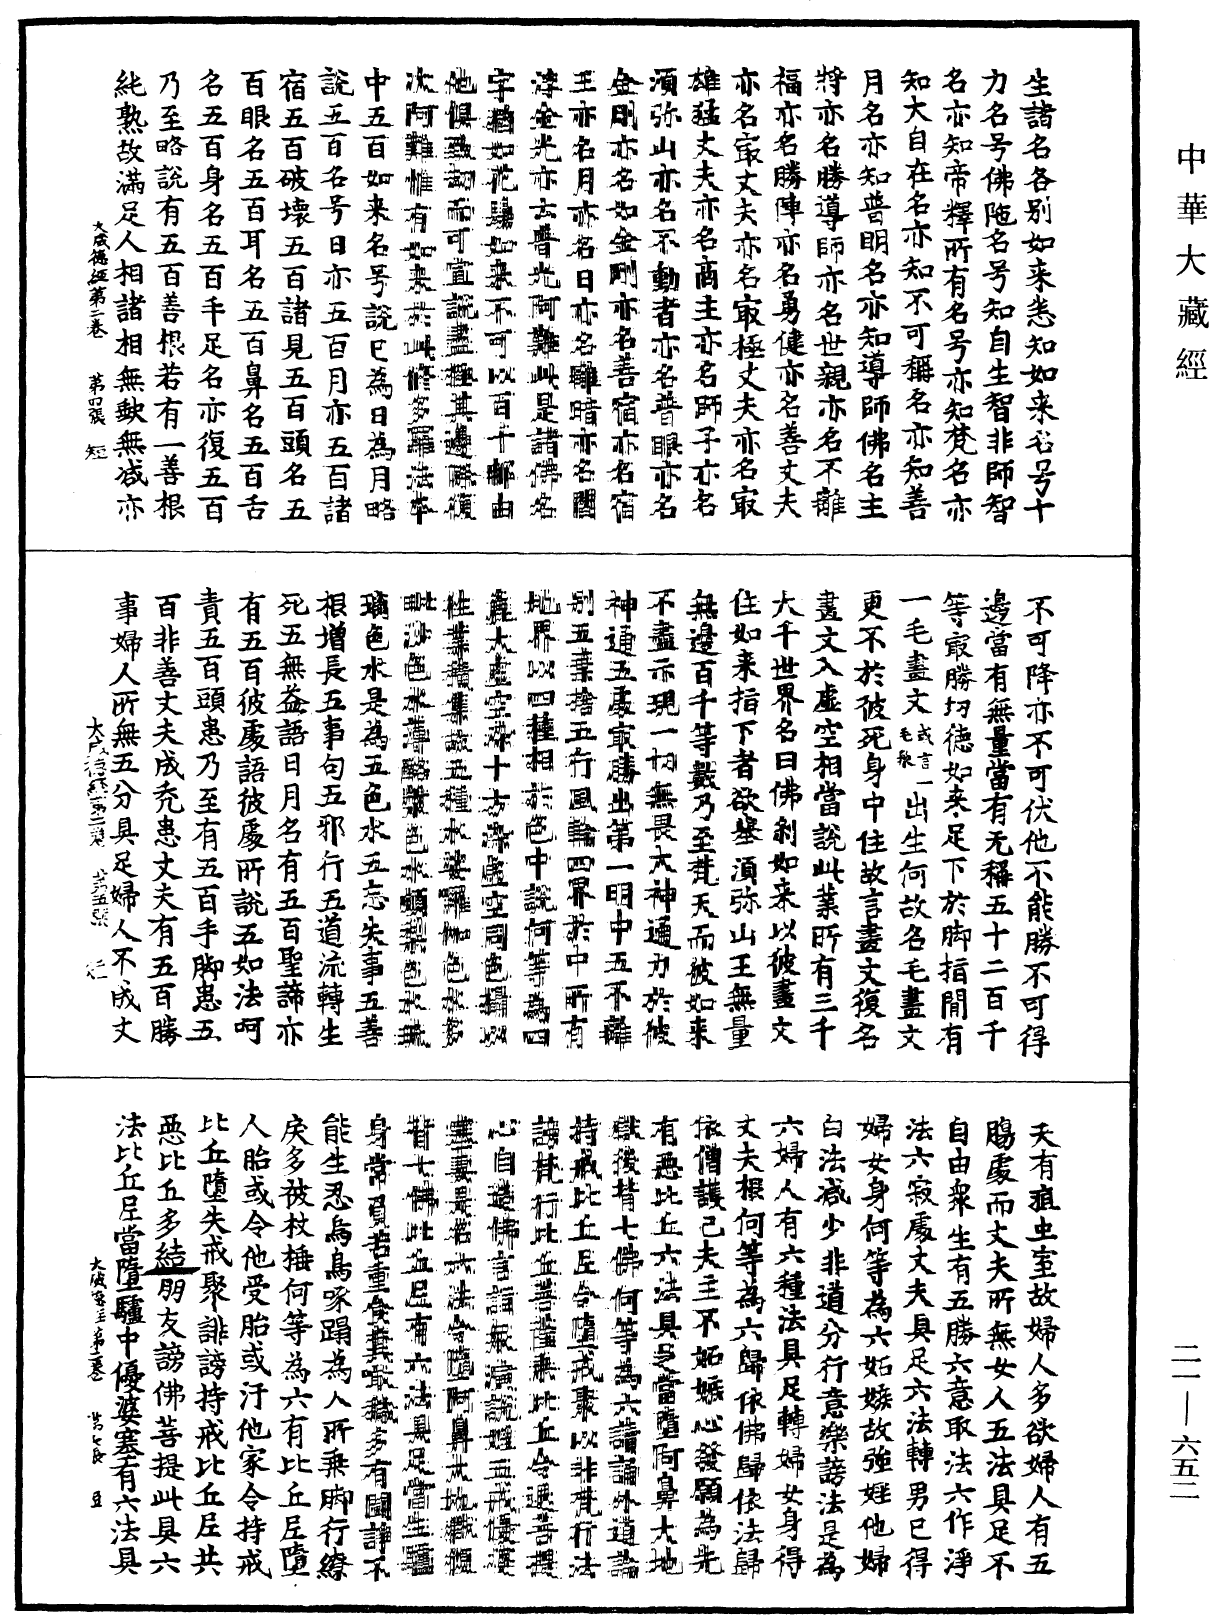 中華大藏經
生諸名各別如来悉知如来名号十
力名号佛陁名号知自生智非師智
名亦知帝釋所有名号亦知梵名亦
知大自在名亦知不可稱名亦知善
月名亦知普明名亦知導師佛名主
將亦名勝導師亦名世親亦名不離
福亦名勝陣亦名勇健亦名善丈夫
亦名㝡丈夫亦名㝡極丈夫亦名㝡
雄猛丈夫亦名商主亦名師子亦名
湏弥山亦名不動者亦名普眼亦名
金剛亦名如金剛亦名善宿亦名宿
王亦名月亦名日亦名離暗亦名閻
浮金光亦去普光阿難此是諸佛名
字猶如花鬘如来不可以百千那由
他俱致劫而可宣說盡極其邊際復
次阿難惟有如来於此修多羅法本
中五百如来名号說已為日為月略
說五百名号日亦五百月亦五百諸
宿五百破壞五百諸見五百頭名五
百眼名五百耳名五百鼻名五百舌
名五百身名五百手足名亦復五百
乃至略說有五百善根若有一善根
純熟故滿足人相諸相無缺無减亦
大威德經第二卷 第四張 短
不可降亦不可伏他不能勝不可得
邊當有無量當有无稱五十二百千
等㝡勝切德如来足下於脚指閒有
一毛畫文或言一毛孔出生何故名毛畫文
更不於彼死身中住故言畫文復名
畫文入虛空相當說此業所有三千
大千世界名曰佛刹如来以彼畫文
住如来指下者欲舉湏弥山王無量
無邊百千等數乃至梵天而彼如来
不盡示現一切無畏大神通力於彼
神通五處㝡勝出第一明中五不離
別五業捨五行風輪四界於中所有
地界以四種相於色中說何等為四
真太虛空水十方漭虛空同色攝以
性業積集故五種水娑羅伽色水多
毗沙色水薄酪漿色水頗梨色水琉
璃色水是為五色水五忘失事五善
根增長五事句五邪行五道流轉生
死五無益語日月名有五百聖諦亦
有五百彼處語彼處所說五如法呵
責五百頭患乃至有五百手脚患五
百非善丈夫成禿患丈夫有五百勝
事婦人所無五分具足婦人不成丈
大威德經第二卷 第五張 短
夫有疽虫室故婦人多欲婦人有五
腸處而丈夫所無女人五法具足不
自由衆生有五勝六意取法六作淨
法六寂處丈夫具足六法轉男已得
婦女身何等為六妬嫉故強婬他婦
白法减少非道分行意樂謗法是為
六婦人有六種法具足轉婦女身得
丈夫根何等為六歸依佛歸依法歸
依僧護己夫主不妬嫉心發願為先
有惡比丘六法具足當墮阿鼻大地
獄後背七佛何等為六讀誦外道論
持戒比丘尼令墮戒聚以非梵行法
謗梵行比丘菩薩乘比丘令退菩提
心自造佛言謂般演說婬五戒優婆
塞妻是名六法令墮阿鼻大地獄復
背七佛比丘尼有六法具足當生驢
身常負若重食糞噉穢多有鬪諍不
能生忍烏鳥啄蹋為人所乘脚行繚
戾多被杖捶何等為六有比丘尼墮
人胎或令他受胎或汙他家令持戒
比丘墮失戒聚誹謗持戒比丘尼共
惡比丘多結朋友謗佛菩提此具六
法比丘尼當墮驢中優婆塞有六法具
大威德經第二卷 第六張 豆
二一—六五二